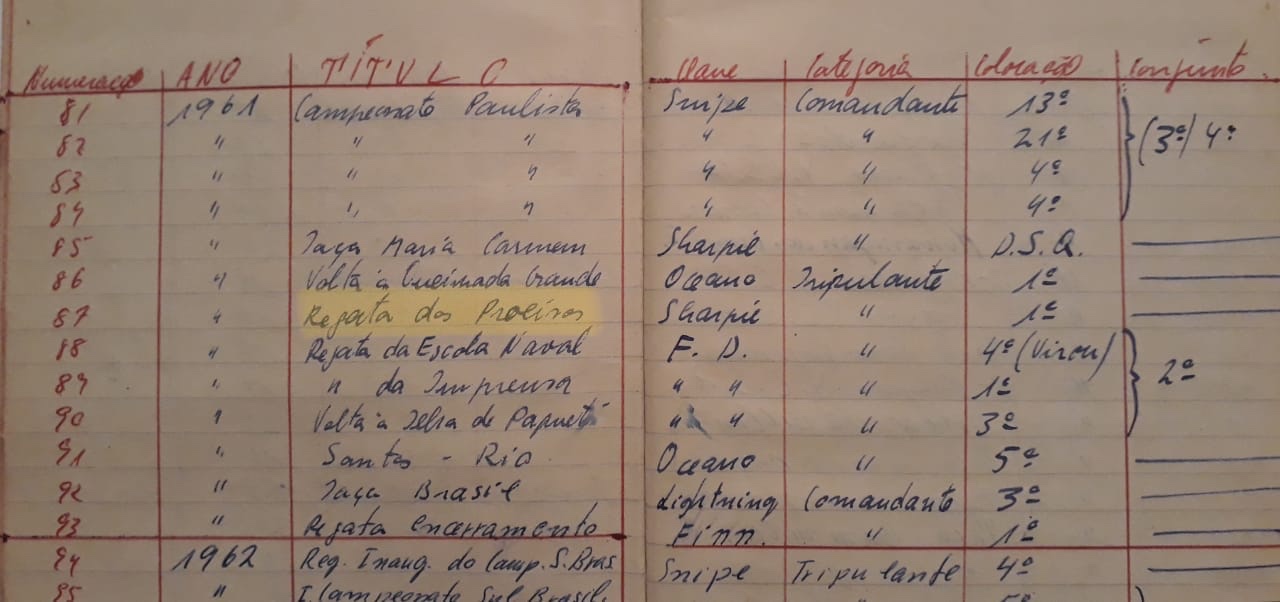 Numeração ANO TÍTULO Classe Categoria Colocação Conjunto
81 1961 Campeonato Paulista Snipe Comandante 13º (3º) 4º
82 " " " " " 21º
83 " " " " " 4º
84 " " " " " 4º
85 " Taça Maria Carmem Sharpie " D.S.Q.
86 " Volta à Queimada Grande Oceano Tripulante 1º
87 " Regata dos Proeiros Sharpie " 1º
88 " Regata da Escola Naval F. D. " 4º (Virou) 2º
89 " " da Imprensa " " " 1º
90 " Volta à Ilha de Paquetá " " " 3º
91 " Santos - Rio Oceano " 5º
92 " Taça Brasil Lightning Comandante 3º
93 " Regata encerramento Finn. " 1º
94 1962 Reg. Inaug. do Camp. S. Bras Snipe Tripulante 4º
95 " I. Campeonato Sul Brasil.